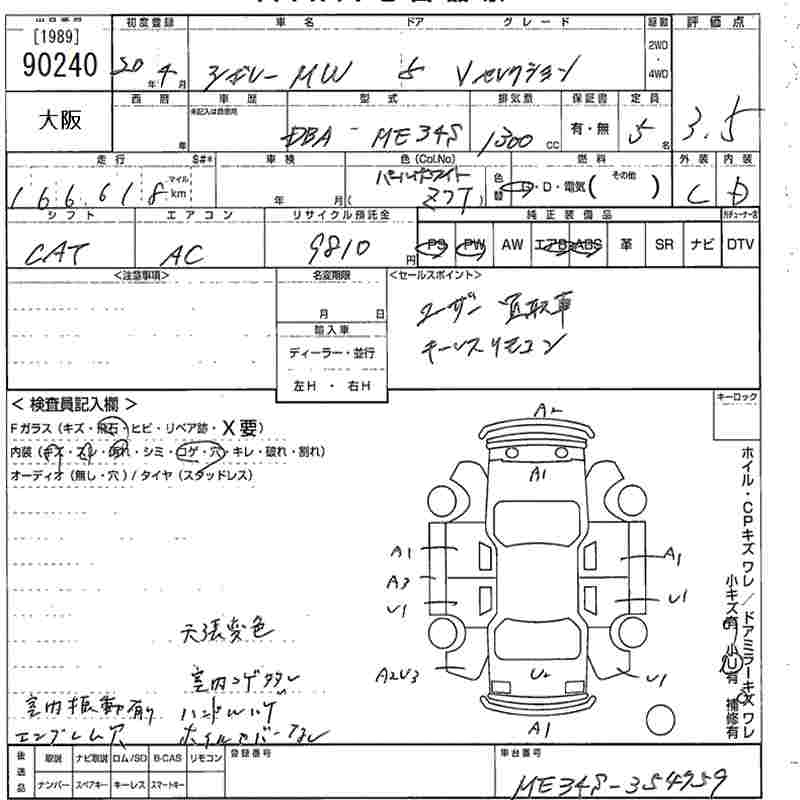 [1989]
90240
初度登録
車名 ドア グレード
経勤
評価点
20年 4月
シボレー MW 5 Vセレクション
2WD
・
4WD
大阪
西暦
車歴
型式
排気量
保証書
定員
未記入は自家用
3.5
年
DBA - ME34S
1300 cc
有・無
5名
走行 S#*
車検
色(Col.No)
燃料
外装
内装
166,618
マイル
km
年 月
パールホワイト
(Z7T)
色替
G・D・電気(その他 )
C
D
シフト
エアコン
リサイクル預託金
純正装備品
CAT
AC
9810円
PS PW AW エアB ABS 革 SR ナビ DTV
<注意事項>
名変期限
<セールスポイント>
月 日
輸入車
ディーラー・並行
左H・右H
ユーザー買取車
キーレスリモコン
< 検査員記入欄 >
キーロック
Fガラス(キズ・飛石・ヒビ・リペア跡・X要)
内装(キズ・スレ・汚れ・シミ・コゲ・穴・キレ・破れ・割れ)
オーディオ(無し・穴)/タイヤ(スタッドレス)
A2
A1
A1
A1
A3
U1
U1
A2U3
U2
U1
A1
ホイル・CPキズ ワレ/ドアミラーキズ ワレ
小キズ有 小U有 補修有
天張変色
室内コゲタダレ
室内振動有り ハンドルハゲ
エンブレム穴 ホイルカバーなし
後送品
取説 ナビ取説 ロム/SD B-CAS リモコン
ナンバー スペアキー キーレス スマートキー
登録番号
車台番号
ME34S-354959